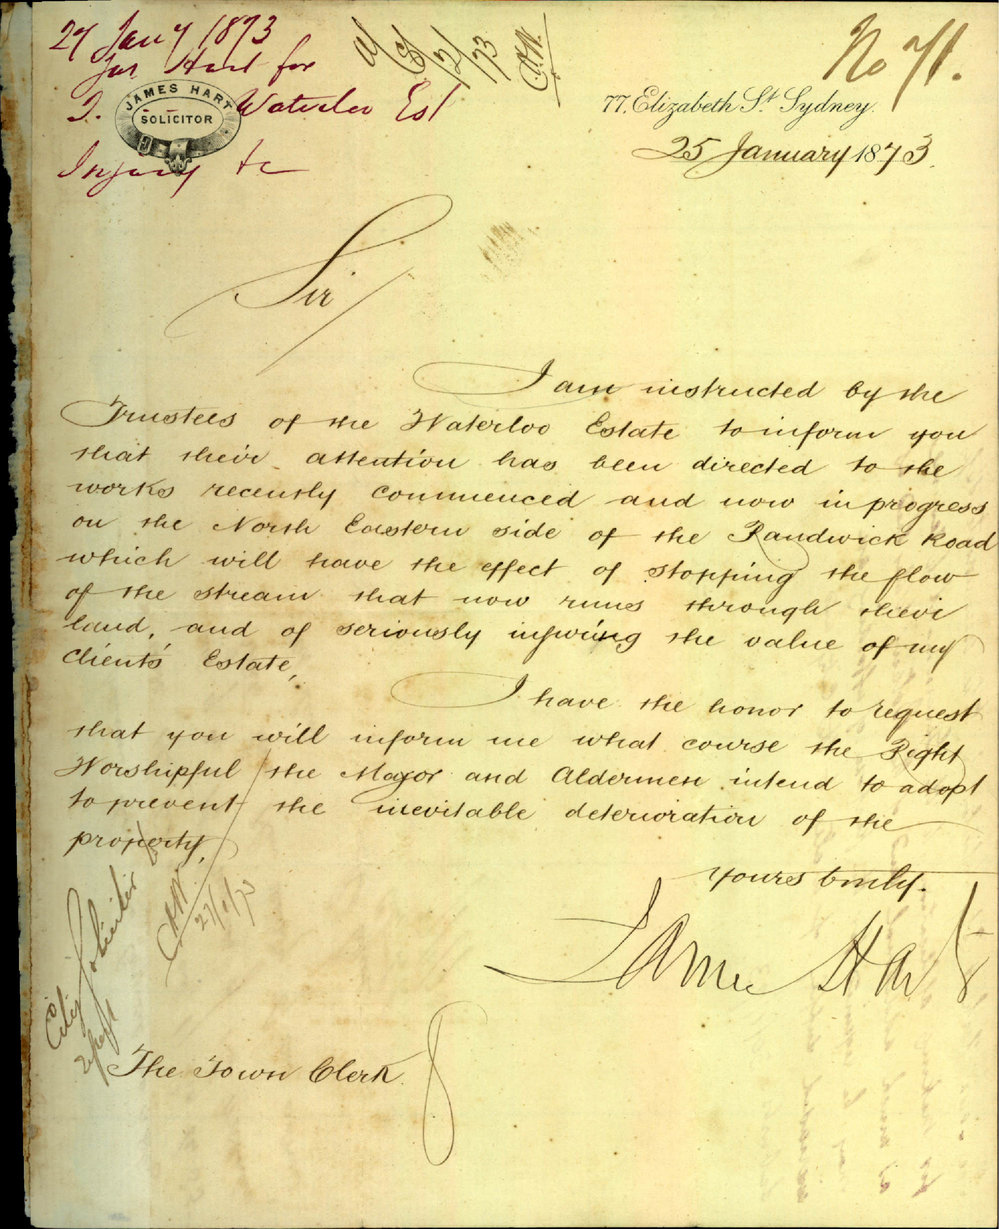 27 Jany 1873
Jas Hart for
T. Waterloo Est
Injury &c
JAMES HART
SOLICITOR
No 71.
77, Elizabeth St Sydney.
25 January 1873.
Sir
I am instructed by the
Trustees of the Waterloo Estate to inform you
that their attention has been directed to the
works recently commenced and now in progress
on the North Eastern side of the Randwick Road
which will have the effect of stopping the flow
of the stream that now runs through their
land, and of seriously injuring the value of my
clients Estate,
I have the honor to request
that you will inform me what course the Right
Worshipful the Mayor and Aldermen intend to adopt
to prevent the inevitable deterioration of the
property,
Yours truly.
James Hart
City Solicitor
27/1/73
The Town Clerk.